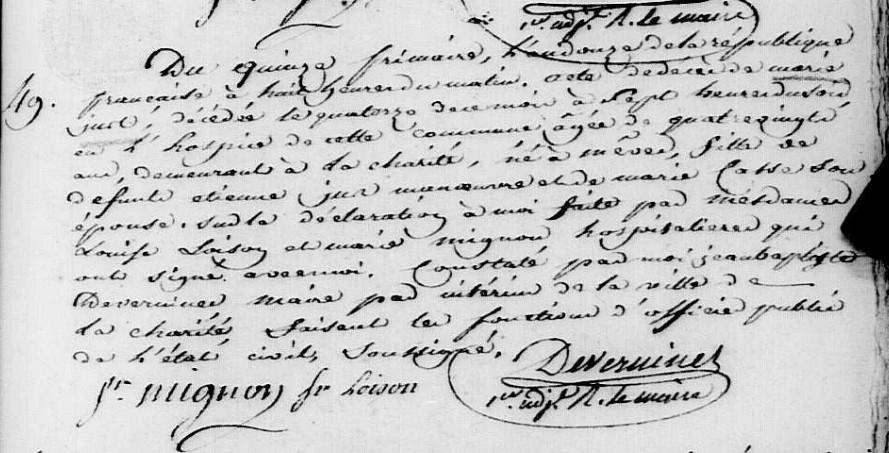 1er adjt. p. le maire
Du quinze frimaire, l'an douze de la république
49. française à huit heures du matin. acte de décès de marie
just, décédée le quatorze de ce mois à sept heures du soir
en l'hospice de cette commune âgée de quatrevingts
ans, demeurant à la charité, né à mêves, fille de
defunts etienne just manœuvre et de marie Casse son
épouse. sur la déclaration à moi faite par mesdames
Louise Loison et marie mignon hospitalieres qui
ont signé avec moi. Constaté par moi jean baptiste
Deveruines maire par intérim de la ville de
la charité faisant les fonctions d'officier public
de l'état civil, soussigné.
Sr. mignon sr Loison Deveruines
1er adjt. p. le maire